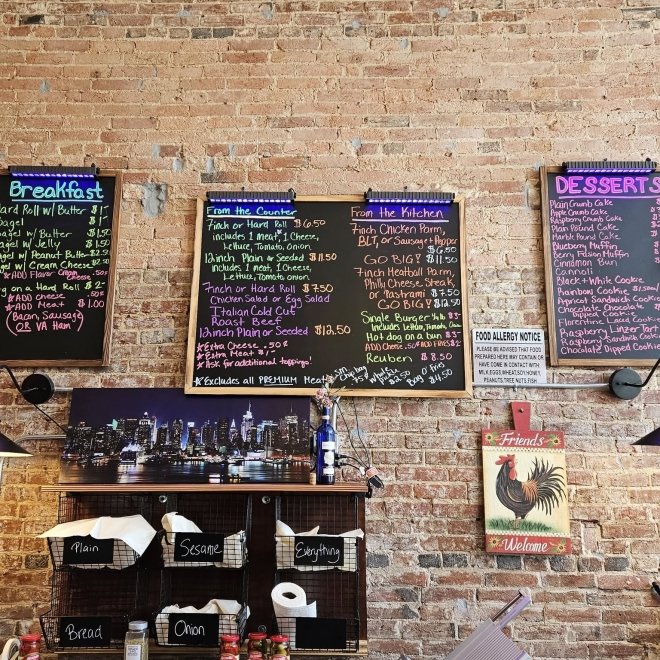 Breakfast
Hard Roll w/ Butter $1.
Bagel $1.
Bagel w/ Butter $1.50
Bagel w/ Jelly $1.50
Bagel w/ Peanut Butter
Bagel w/ Cream Cheese
*ADD Flavor Cream Cheese .50¢
Egg on a Hard Roll $2.
*ADD Cheese .50¢
*ADD Meat $1.00
(Bacon, Sausage
OR VA Ham)
From the Counter
7inch or Hard Roll $6.50
includes 1 meat, 1 Cheese,
Lettuce, Tomato, Onion
12inch Plain or Seeded $11.50
includes 1 meat, 1 Cheese,
Lettuce, Tomato, Onion
7inch or Hard Roll $7.50
Chicken Salad or Egg Salad
Italian Cold Cut
Roast Beef
12inch Plain or Seeded $12.50
*Extra Cheese .50¢
*Extra Meat $1.
*Ask for additional toppings!
*Excludes all PREMIUM Meats
From the Kitchen
7inch Chicken Parm,
BLT, or Sausage + Pepper
$6.50
GO BIG! $11.50
7inch Meatball Parm,
Philly Cheese Steak
or Pastrami $7.50
GO BIG! $12.50
Single Burger $3
includes Lettuce, Tomato, Onion
Hot dog on a bun $3
ADD Cheese .50 / ADD FRIES $2
Reuben $8.50
Whole
$2.50
Bag O' Fries
$4.50
DESSERTS
Plain Crumb Cake
Apple Crumb Cake
Raspberry Crumb Cake
Plain Pound Cake
Marble Pound Cake
Blueberry Muffin
Berry Fusion Muffin
Cinnamon Bun
Cannoli
Black + White Cookie
Rainbow Cookie $1.50
Apricot Sandwich Cookie
Chocolate Chocolate
Dipped Cookie
Florentine Laced Cookie
Raspberry Linzer Tart
Raspberry Sandwich Cookie
Chocolate Dipped Cookie
FOOD ALLERGY NOTICE
PLEASE BE ADVISED THAT FOOD
PREPARED HERE MAY CONTAIN OR
HAVE COME IN CONTACT WITH
MILK, EGGS, WHEAT, SOY, HONEY,
PEANUTS, TREE NUTS, FISH
Friends
Welcome
Plain
Sesame
Everything
Bread
Onion